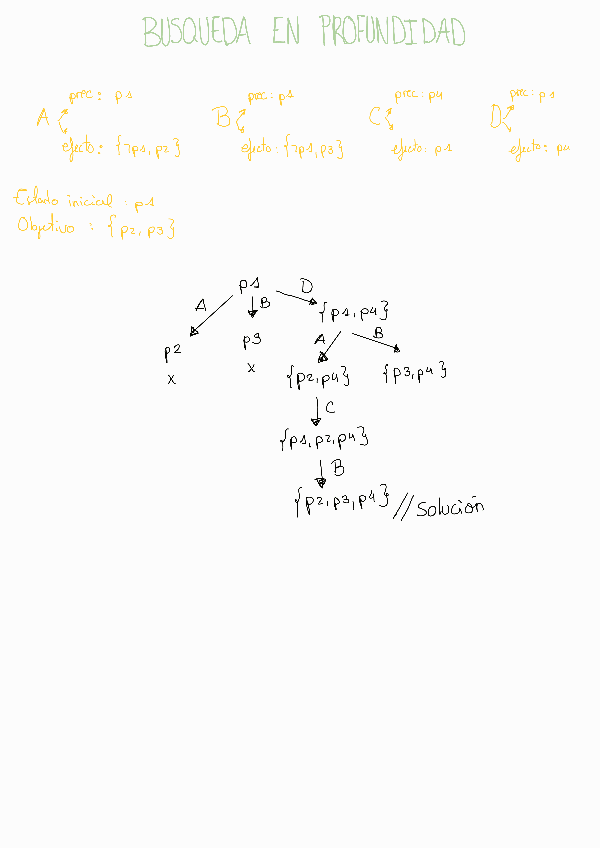 BUSQUEDA EN PROFUNDIDAD
prec: p1 prec: p1 prec: p4 prec: p1
A B C D
efecto: {¬p1, p2} efecto: {¬p1, p3} efecto: p1 efecto: p4
Estado inicial: p1
Objetivo: {p2, p3}
p1 D
A B {p1, p4}
p3 A B
p2 {p2, p4} {p3, p4}
x x
C
{p1, p2, p4}
B
{p2, p3, p4} // Solución